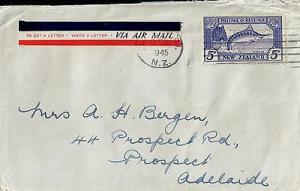 TO GET A LETTER • WRITE A LETTER VIA AIR MAIL
1945
N.Z.
POSTAGE & REVENUE
NEW ZEALAND
5D 5D
Mrs A. H. Bergen,
44 Prospect Rd.,
Prospect
Adelaide